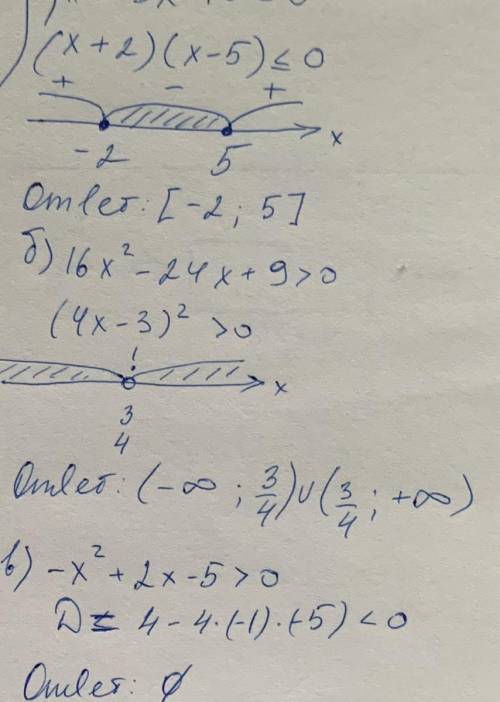 (x+2)(x-5)≤0
+ - +
-2 5 x
Ответ: [-2; 5]
б) 16x²-24x+9>0
(4x-3)²>0
!
x
3
4
Ответ: (-∞; 3/4)∪(3/4; +∞)
в) -x²+2x-5>0
D = 4-4·(-1)·(-5)<0
Ответ: ∅